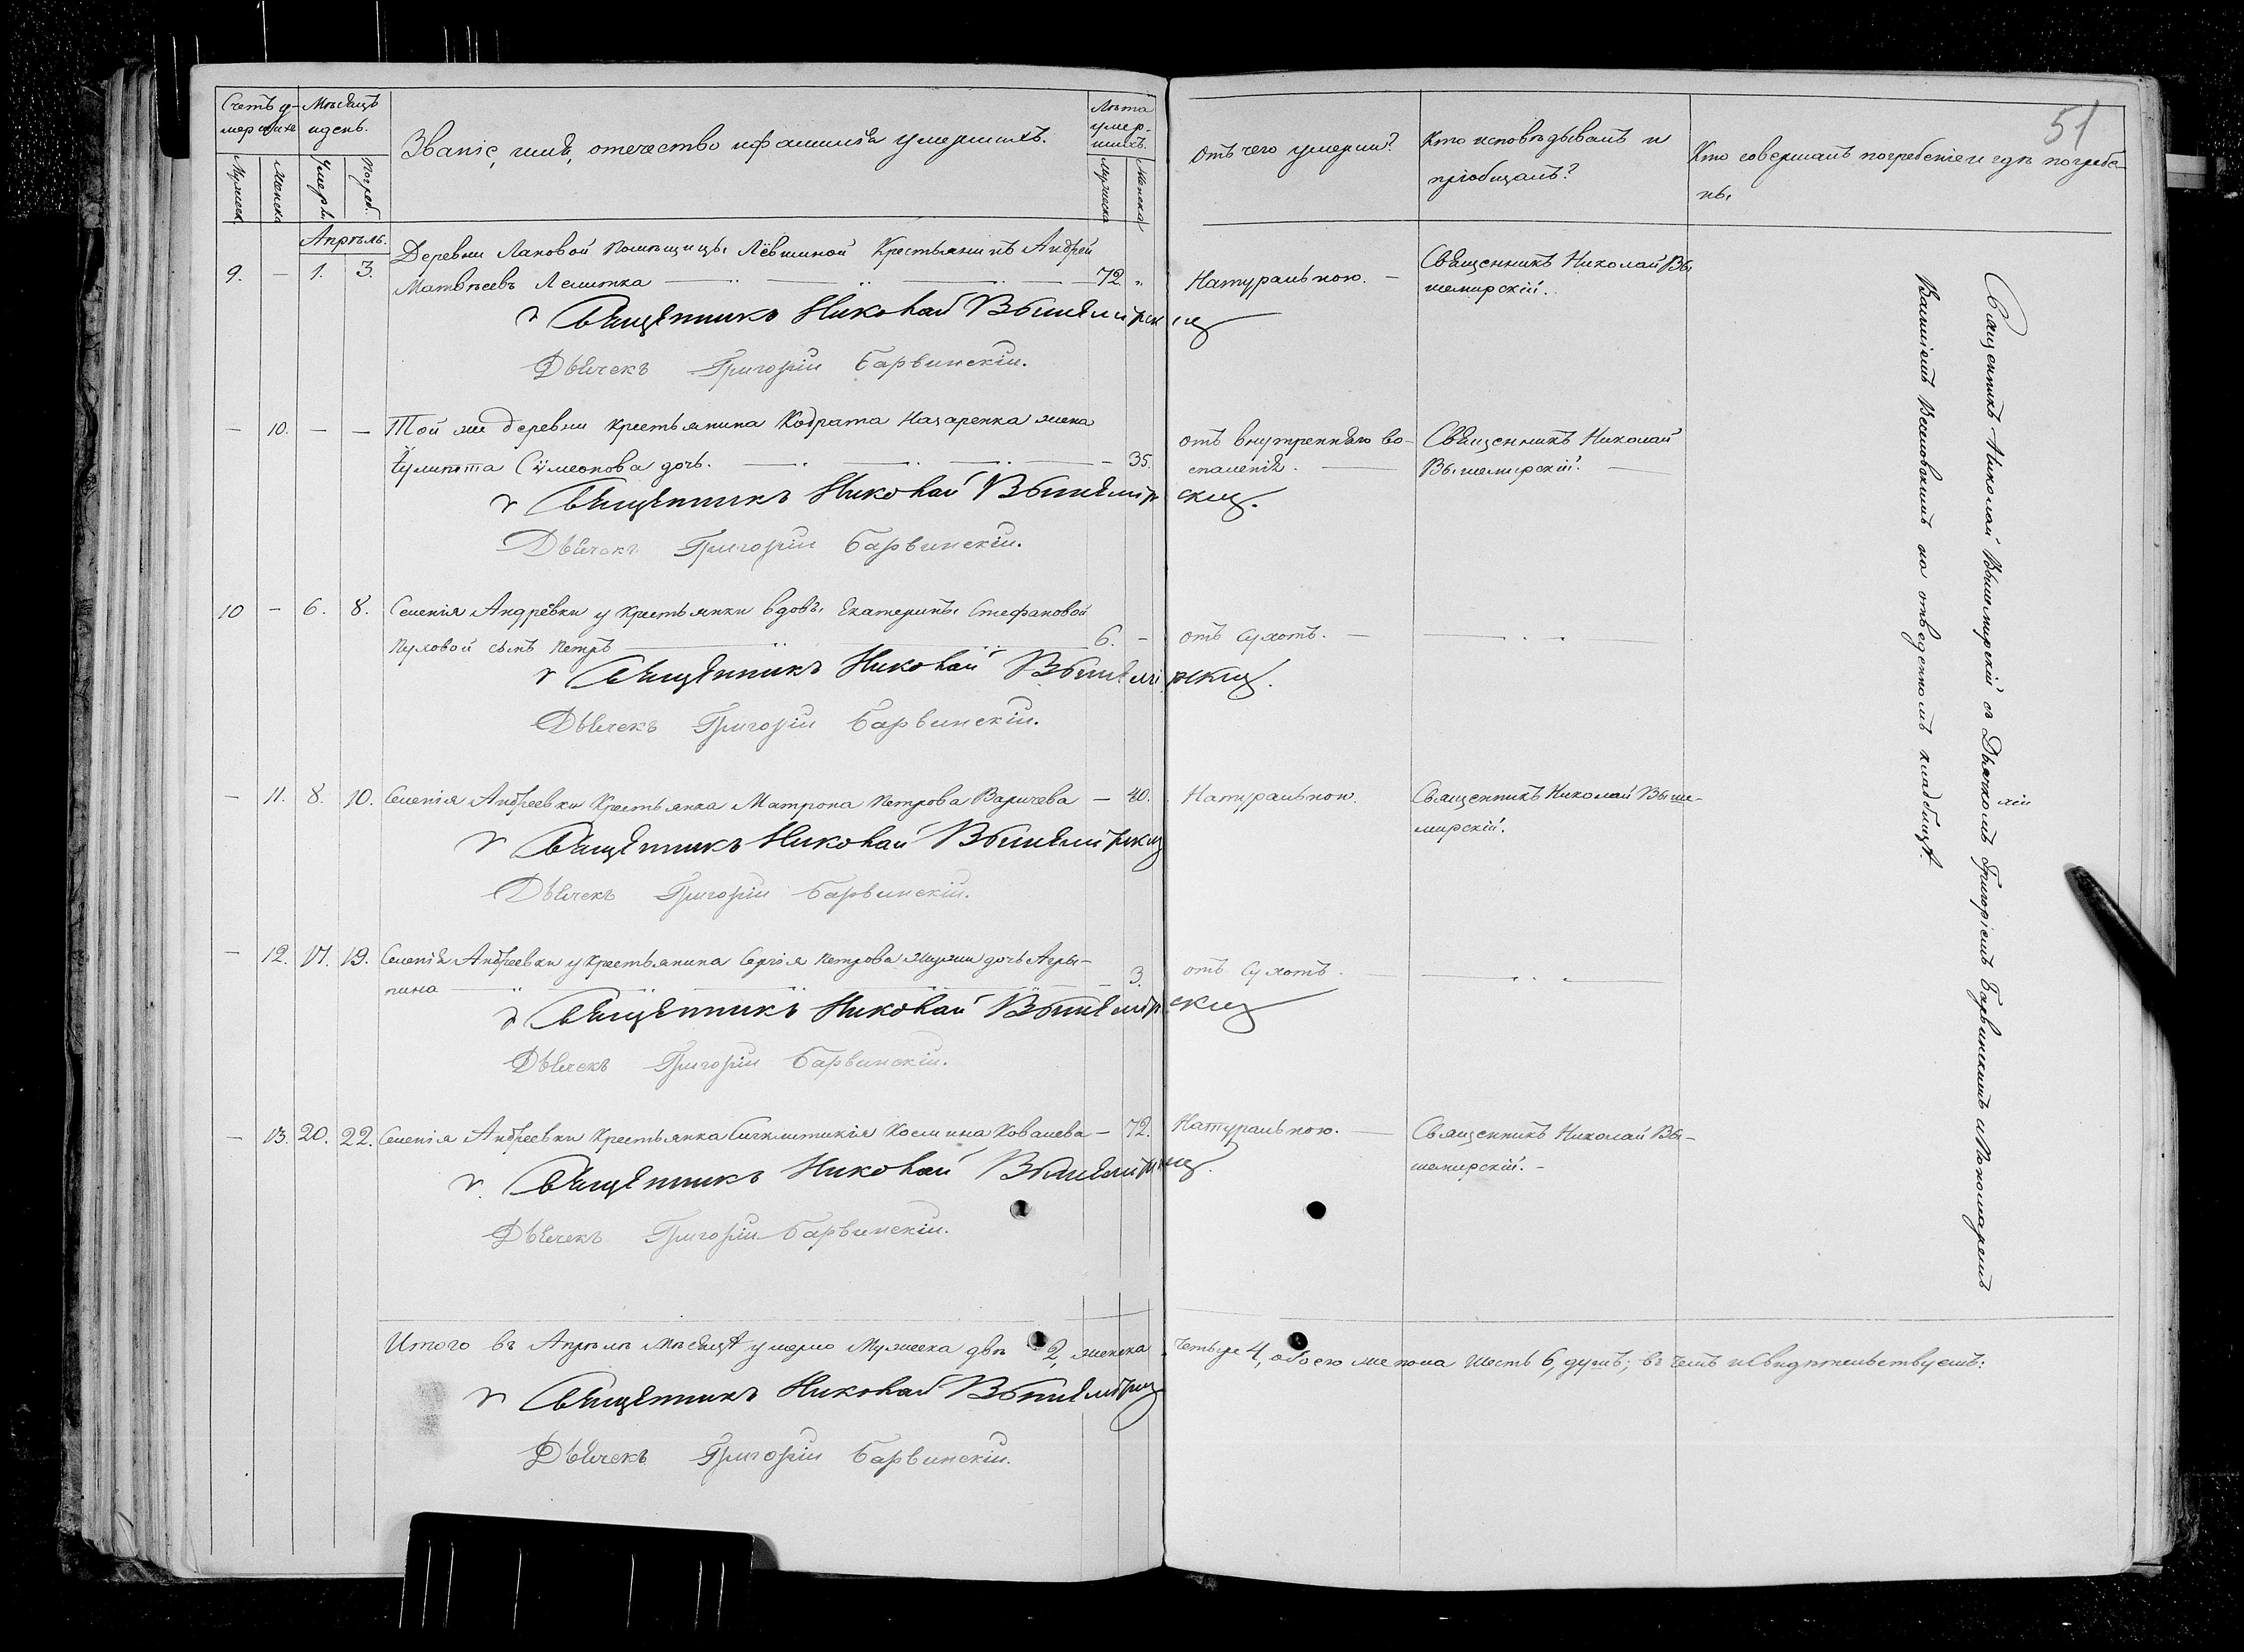 51
Счетъ у-
мершихъ
Мѣсяцъ
и день.
Званіе, имя, отечество и фамилія умершихъ.
Лѣта
умер-
шихъ.
Отъ чего умерли?
Кто исповѣдывалъ и
пріобщалъ?
Кто совершалъ погребеніе и гдѣ погребе-
ны.
Мужеска
Женска
Умерли.
Погреб.
Мужеска
Женска
Апрѣль.
9. — 1. 3. Деревни Лаковой помѣщицы Лёвшиной Крестьянинъ Андрей
Матвѣевъ 72. Натуральною. — Священникъ Николай Вы
шемирскій.
Священникъ Николай Вышемирскій
Дьячекъ Григорій Барвинскій.
— 10. — — Той же деревни крестьянина Кодрата Назаренка жена
Іулиитта Сѵмеонова дочь. — 35. отъ внутренняго во-
спаленія. — Священникъ Николай
Вышемирскій. —
Священникъ Николай Вышемирскій.
Дьячекъ Григорій Барвинскій.
10 — 6. 8. Селенія Андрёвки у крестьянки вдовы Екатерины Стефановой
сынъ Петръ — 6. — отъ Сухотъ. —
Священникъ Николай Вышемирскій.
Дьячекъ Григорій Барвинскій.
— 11. 8. 10. Селенія Андреевки Крестьянка Матрона Петрова Варичева — 40. Натуральною. Священникъ Николай Выше-
мирскій.
Священникъ Николай Вышемирскій
Дьячекъ Григорій Барвинскій.
— 12. 17. 19. Селенія Андреевки у крестьянина Сергія Петрова дочь Агри-
пина — 3. отъ Сухотъ. —
Священникъ Николай Вышемирскій
Дьячекъ Григорій Барвинскій.
— 13. 20. 22. Селенія Андреевки Крестьянка Сигклитикія Космина Ковалева — 72. Натуральною. — Священникъ Николай Вы-
шемирскій. —
Священникъ Николай Вышемирскій.
Дьячекъ Григорій Барвинскій.
Священникъ Николай Вышемирскій съ Дьячкомъ Григоріемъ Барвинскимъ и Пономаремъ
Василіемъ на отведенномъ кладбищѣ.
Итого въ Апрѣлѣ Мѣсяцѣ умерло Мужеска два 2, женска четыре 4, обоего же пола шесть 6, душъ; въ чемъ и свидѣтельствуемъ:
Священникъ Николай Вышемирскій
Дьячекъ Григорій Барвинскій.